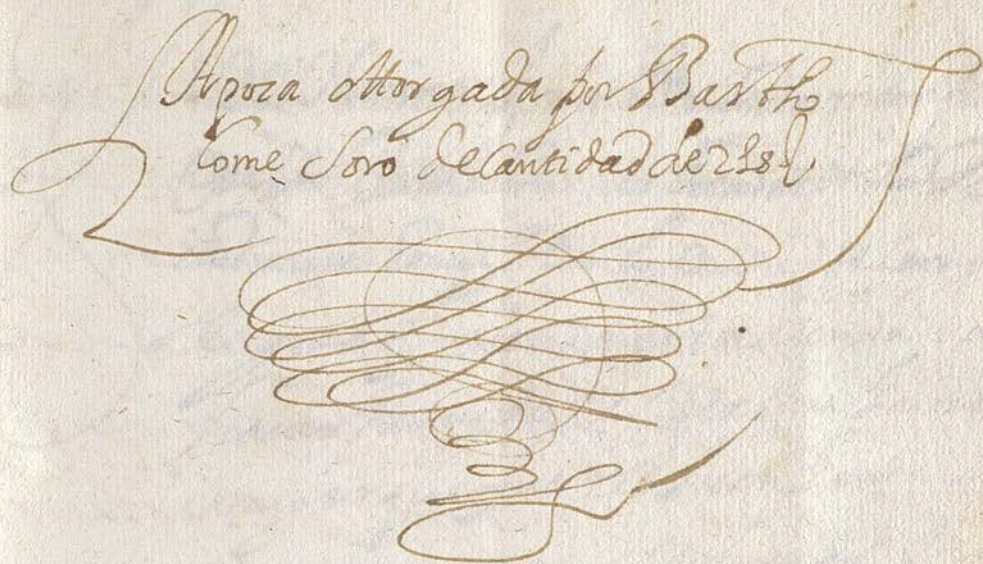 Apoca ottorgada por Bartho
lome Soro de Cantidad de 218 l